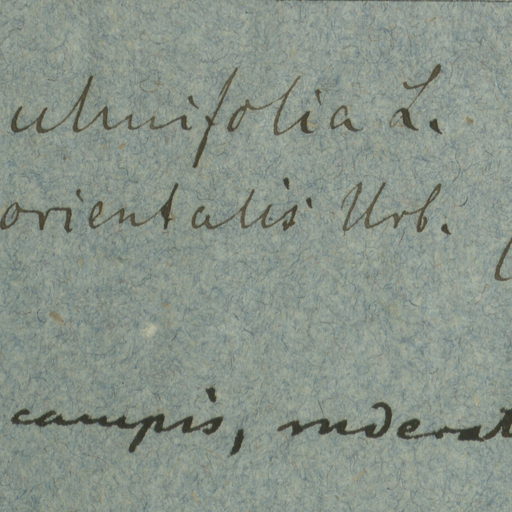 ulmifolia L.
orientalis Urb.
campis, ruderat